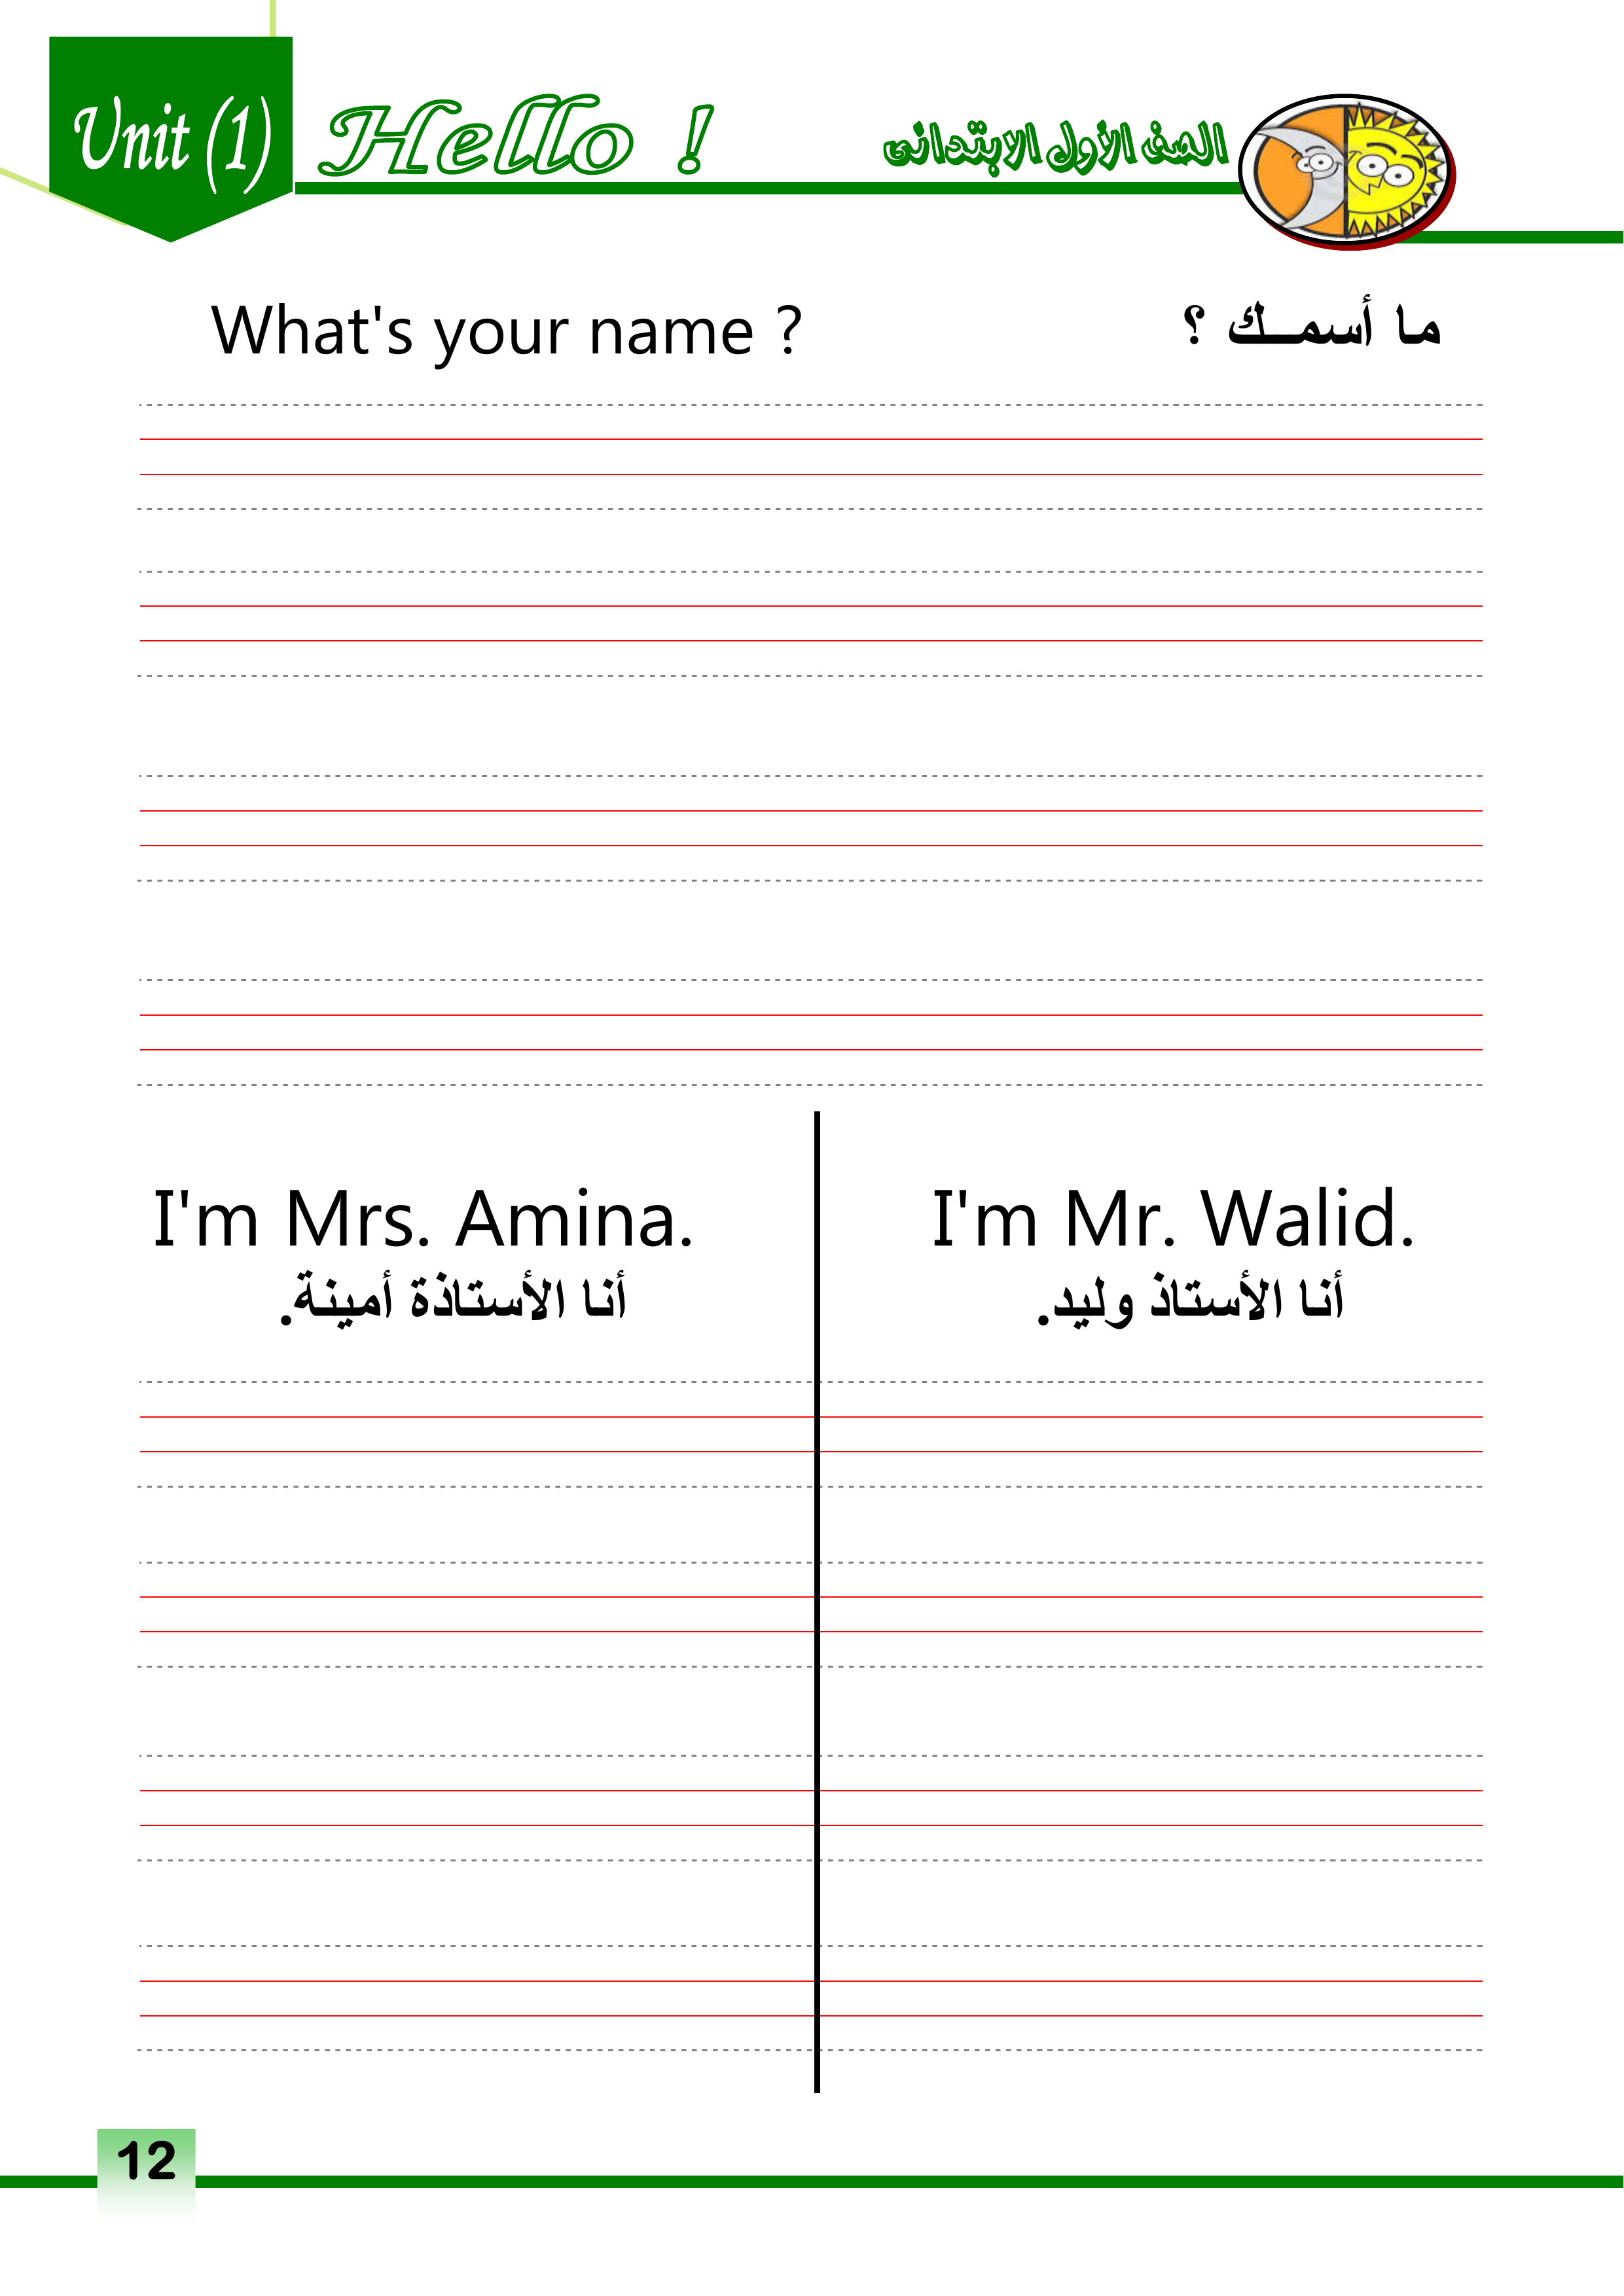 Unit (1) Hello ! الصف الأول الابتدائى
What's your name ? ما أسمـــك ؟
I'm Mrs. Amina.
أنا الأستاذة أمينة.
I'm Mr. Walid.
أنا الأستاذ وليد.
12